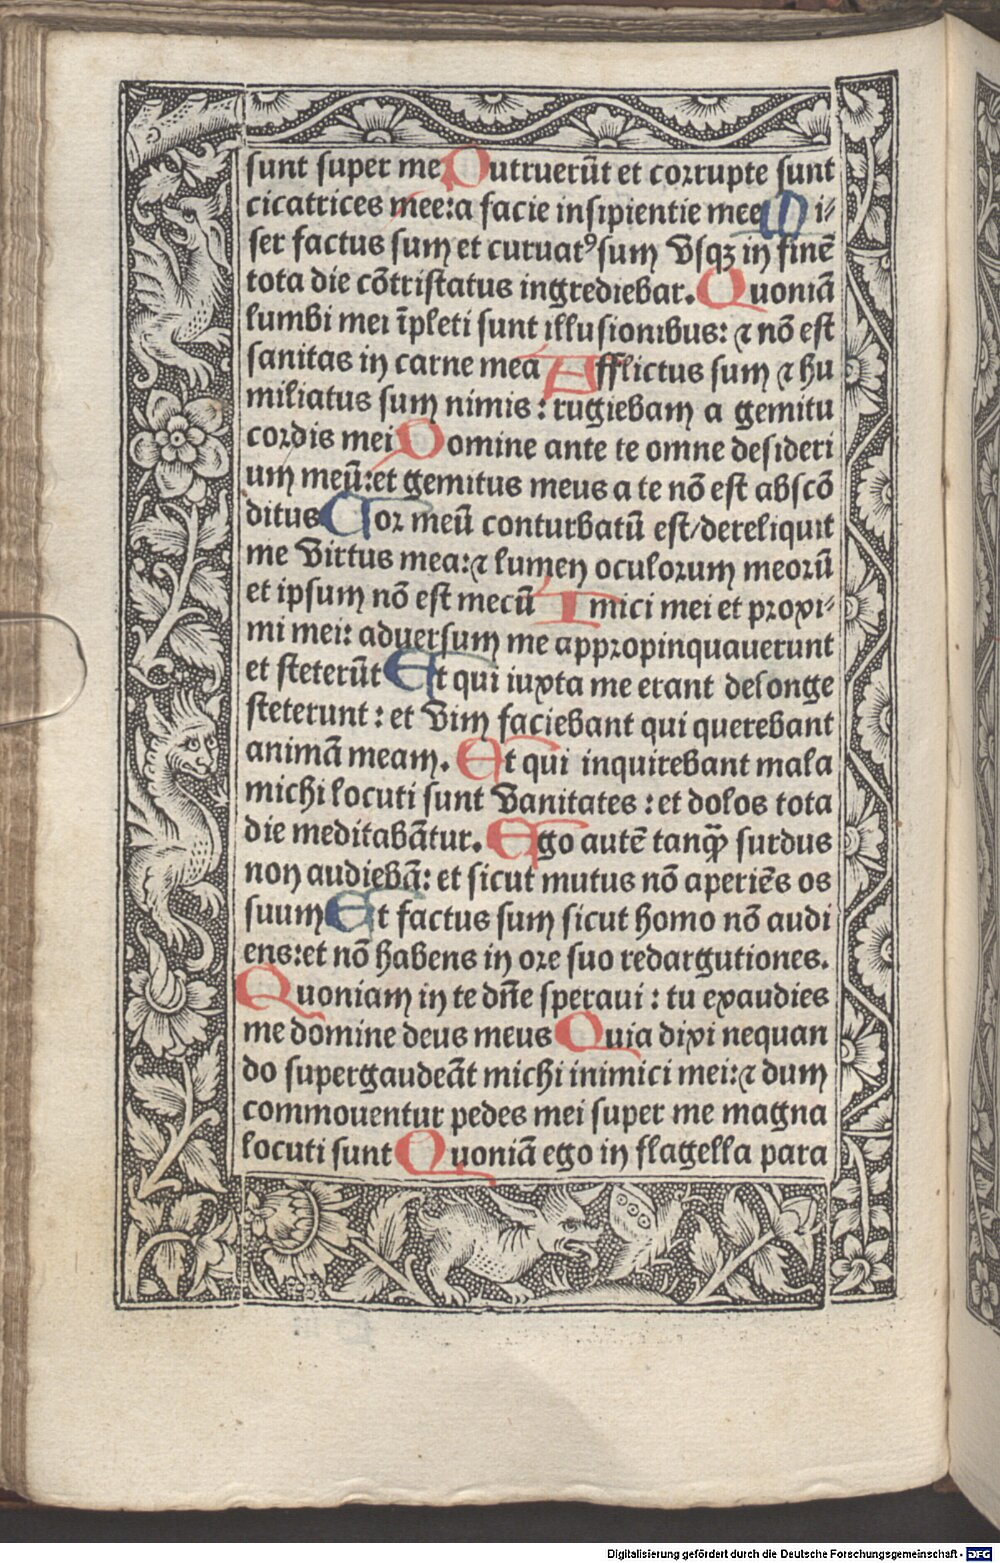 sunt super me Putruerūt et corrupte sunt
cicatrices mee: a facie insipientie mee Mi-
ser factus sum et curuatꝰ sum vsqꝫ in finē
tota die cōtristatus ingrediebar. Quoniā
lumbi mei īpleti sunt illusionibus: ⁊ nō est
sanitas in carne mea Afflictus sum ⁊ hu
miliatus sum nimis: rugiebam a gemitu
cordis mei Domine ante te omne desideri
um meū: et gemitus meus a te nō est abscō
ditus Cor meū conturbatū est/ dereliquit
me virtus mea: ⁊ lumen oculorum meorū
et ipsum nō est mecū Imici mei et proxi-
mi mei: aduersum me appropinquauerunt
et steterūt Et qui iuxta me erant delonge
steterunt: et vim faciebant qui querebant
animā meam. Et qui inquirebant mala
michi locuti sunt vanitates: et dolos tota
die meditabātur. Ego autē tanꝙ̄ surdus
non audiebā: et sicut mutus nō aperiēs os
suum Et factus sum sicut homo nō audi
ens: et nō habens in ore suo redargutiones.
Quoniam in te dn̄e speraui: tu exaudies
me domine deus meus Quia dixi nequan
do supergaudeāt michi inimici mei: ⁊ dum
commouentur pedes mei super me magna
locuti sunt Quoniā ego in flagella para
Digitalisierung gefördert durch die Deutsche Forschungsgemeinschaft - DFG